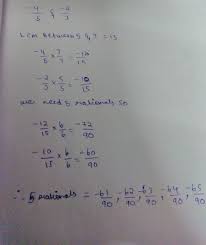 -4/5 & -2/3
LCM between 5 & 3 = 15
-4/5 × 3/3 = -12/15
-2/3 × 5/5 = -10/15
we need 5 rationals so
-12/15 × 6/6 = -72/90
-10/15 × 6/6 = -60/90
∴ 5 rationals = -61/90, -62/90, -63/90, -64/90, -65/90